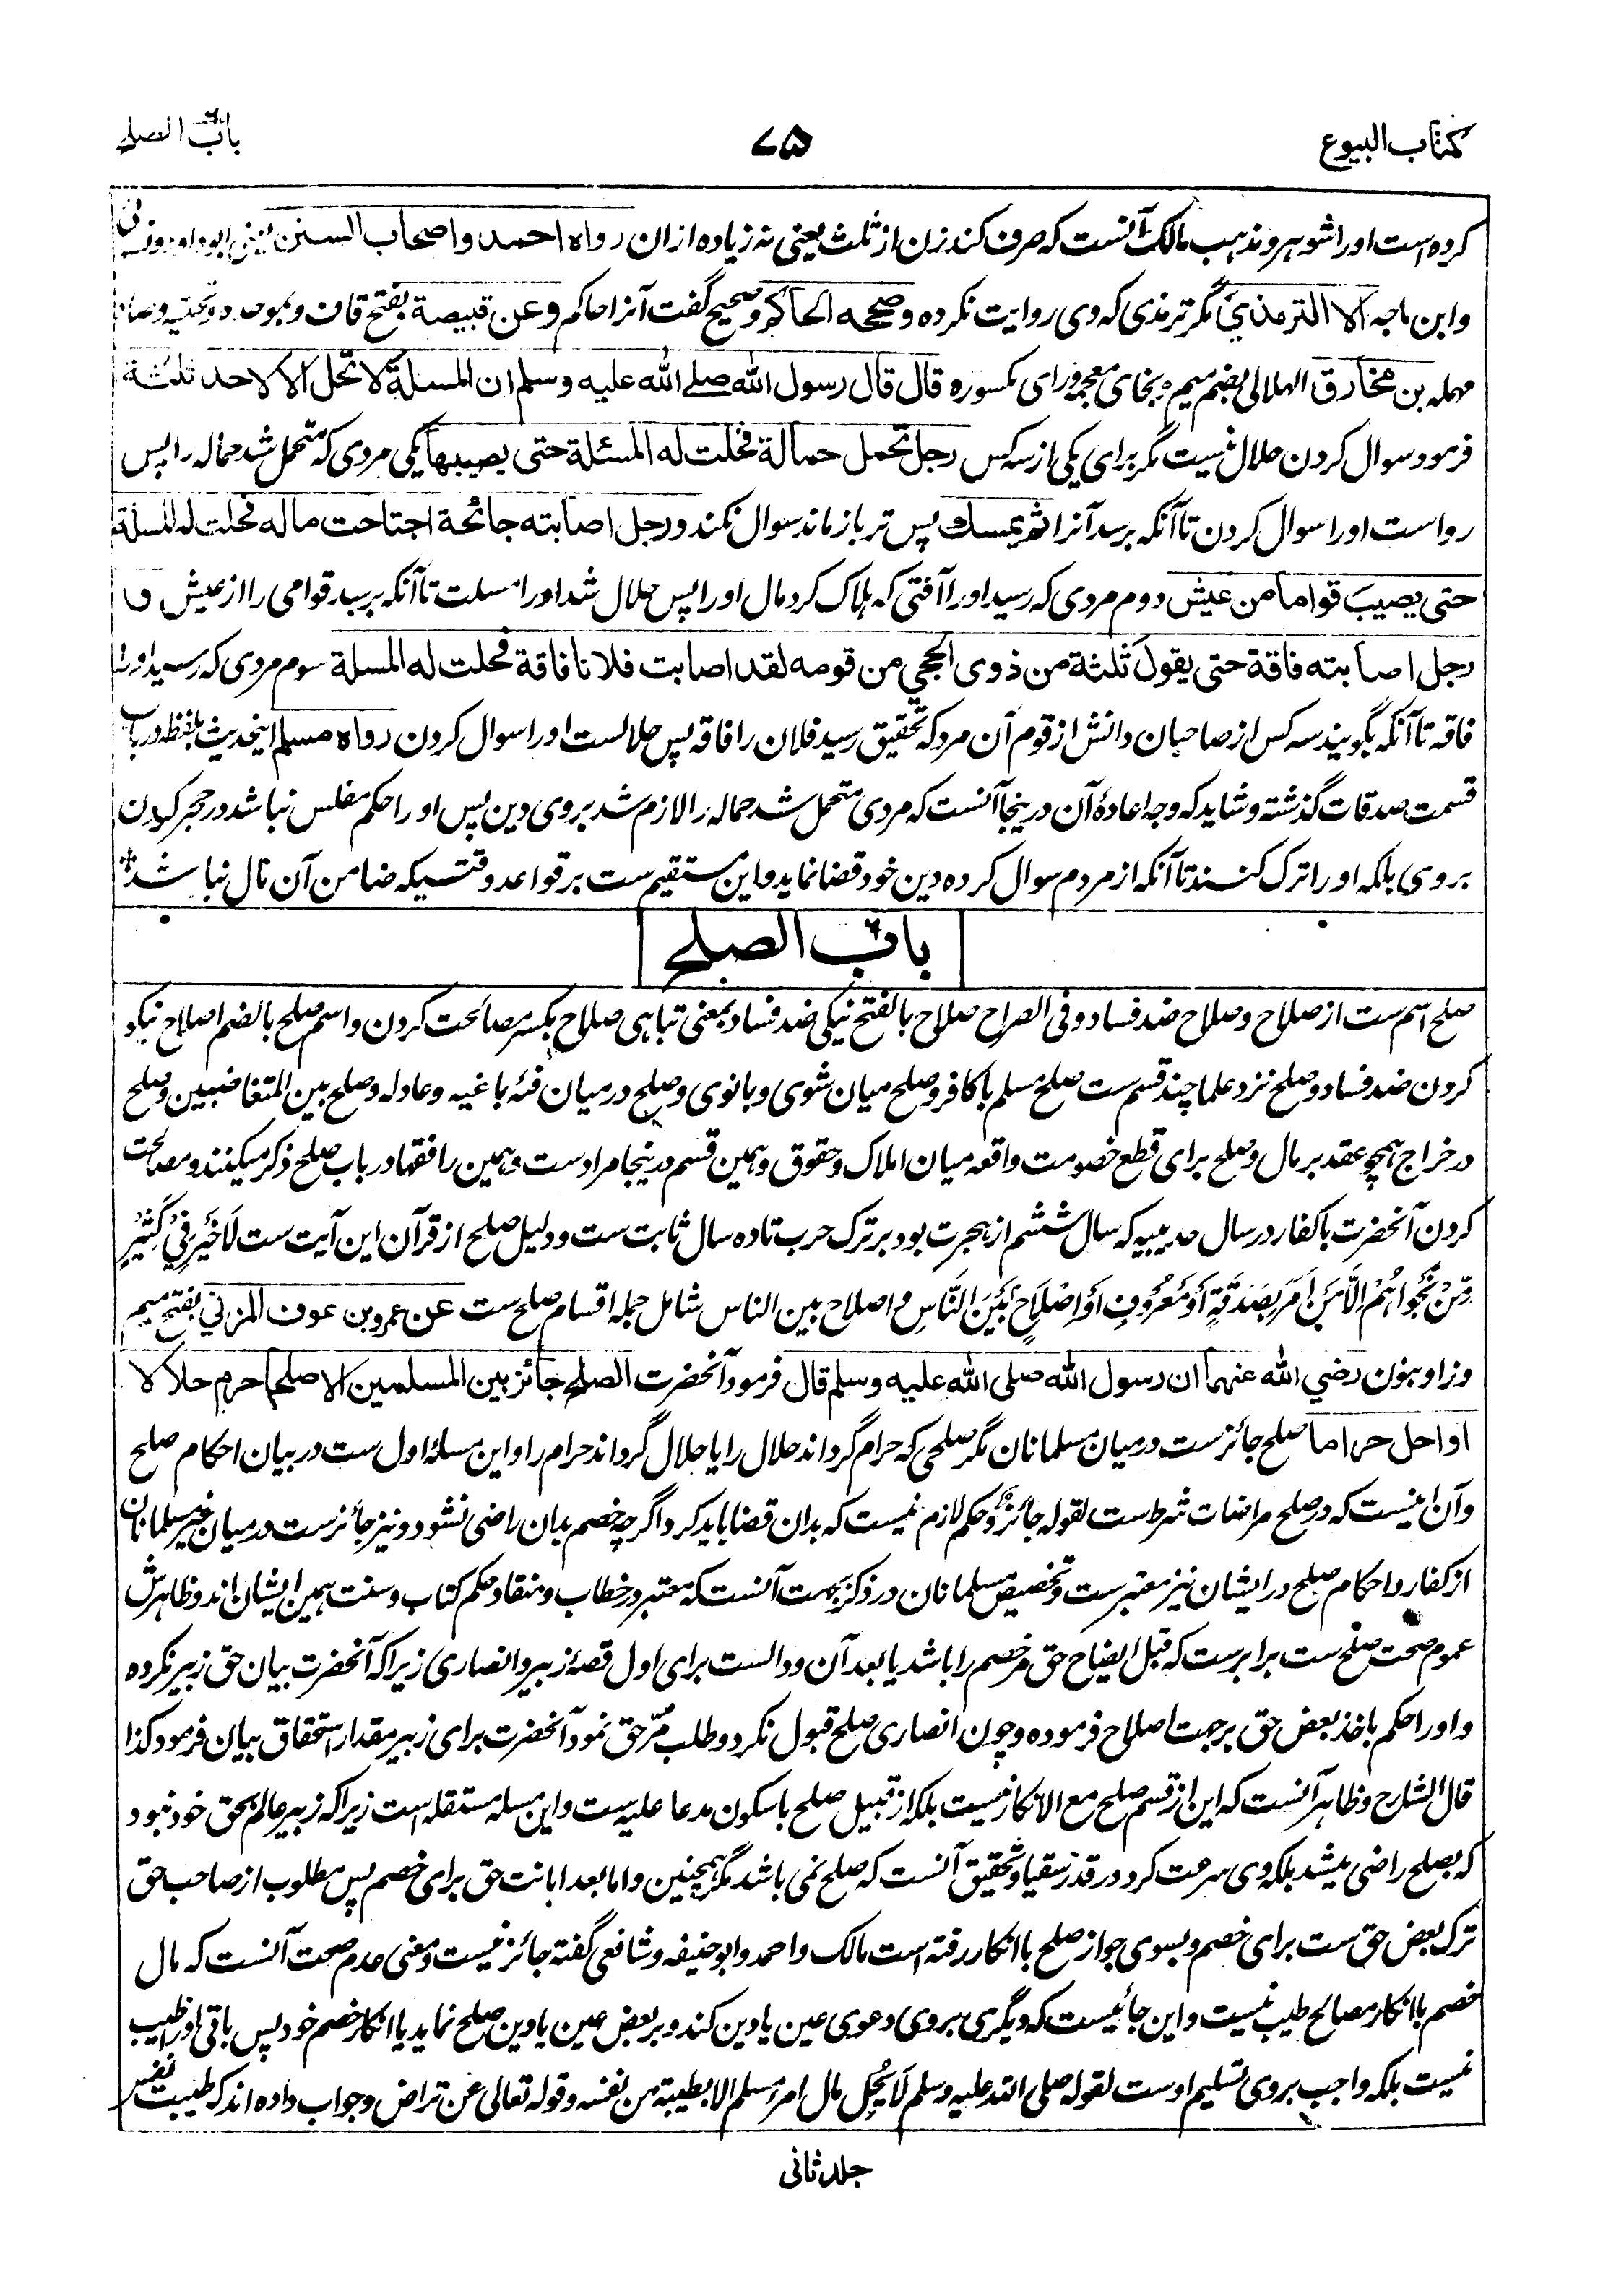 کتاب البیوع
۷۵
باب الصلح
کرده است او را شوهر و مذهب مالک آنست که صرف کند زن از ثلث یعنی نه زیاده ازان رواه احمد واصحاب السنن یعنی ابوداود و نسائی
وابن ماجه الا الترمذي مگر ترمذی که وی روایت نکرده وصححه الحاکم وصحیح گفت آنرا حاکم وعن قبیصة بفتح قاف و بموحده وتحتیه وصاد
مهمله بن مخارق الهلالی بضم میم و بخای معجمه ورای مکسوره قال قال رسول الله صلے الله علیه وسلم ان المسلة لا تحل الا لاحد ثلثة
فرمود سوال کردن حلال نیست مگر برای یکی از سه کس رجل تحمل حمالة فحلت له المسئلة حتی یصیبها یکی مردی که متحمل شد حماله را پس
رواست او را سوال کردن تا آنکه برسد آنرا ثم یمسك پس تر باز ماند سوال نکند ورجل اصابته جائحة اجتاحت ماله فحلت له المسلة
حتی یصیب قواما من عیش دوم مردی که رسید او را آفتی که هلاک کرد مال او را پس حلال شد او را مسلت تا آنکه برسد قوامی را از عیش و
رجل اصابته فاقة حتی یقول ثلثة من ذوی الحجی من قومه لقد اصابت فلانا فاقة فحلت له المسلة سوم مردی که رسید او را
فاقه تا آنکه بگویند سه کس از صاحبان دانش از قوم آن مرد که تحقیق رسید فلان را فاقه پس حلالست او را سوال کردن رواه مسلم اینحدیث بلفظه در باب
قسمت صدقات گذشته و شاید که وجه اعادهٔ آن درینجا آنست که مردی متحمل شد حماله را لازم شد بروی دین پس او را حکم مفلس نباشد در حجر کردن
بروی بلکه او را ترک کنند تا آنکه از مردم سوال کرده دین خود قضا نماید واین مستقیم ست بر قواعد وقتیکه ضامن آن مال نباشد
باب الصلح
صلح اسم ست از صلاح و صلاح ضد فساد وفی الصراح صلاح بالفتح نیکی ضد فساد بمعنی تباهی صلاح بکسر مصالحت کردن واسم صلح بالضم اصلاح نیکو
کردن ضد فساد و صلح نزد علما چند قسم ست صلح مسلم با کافر و صلح میان شوی و بانوی و صلح درمیان فئه باغیه وعادله و صلح بین المتغاضبین و صلح
در خراج همچو عقد بر مال و صلح برای قطع خصومت واقعه میان املاک و حقوق و همین قسم درینجا مرادست و همین را فقها در باب صلح ذکر میکنند و مصالحت
کردن آنحضرت با کفار در سال حدیبیه که سال ششم از هجرت بود بر ترک حرب تا ده سال ثابت ست و دلیل صلح از قرآن این آیت ست لَا خَیْرَ فِیْ کَثِیْرٍ
مِّنْ نَّجْوٰىهُمْ اِلَّا مَنْ اَمَرَ بِصَدَقَةٍ اَوْ مَعْرُوفٍ اَوْ اِصْلَاحٍ بَیْنَ النَّاسِ و اصلاح بین الناس شامل جمله اقسام صلح ست عن عمرو بن عوف المزني بفتح میم
وزا و بنون رضي الله عنهما ان رسول الله صلی الله علیه وسلم قال فرمود آنحضرت الصلح جائز بین المسلمین الا صلحا حرم حلالا
او احل حراما صلح جائزست درمیان مسلمانان مگر صلحی که حرام گرداند حلال را یا حلال گرداند حرام را و این مسلهٔ اول ست در بیان احکام صلح
وآن اینست که در صلح مراضات شرط ست لقوله جائز و حکم لازم نیست که بدان قضا باید کرد اگر چه خصم بدان راضی نشود و نیز جائزست درمیان غیر مسلمانان
از کفار و احکام صلح در ایشان نیز معتبرست و تخصیص مسلمانان در ذکر بجهت آنست که معتبر در خطاب و منقاد حکم کتاب و سنت همین ایشان اند و ظاهرش
عموم صحت صلح ست برابرست که قبل ایضاح حق مر خصم را باشد یا بعد آن و دالست برای اول قصهٔ زبیر و انصاری زیرا که آنحضرت بیان حق زبیر نکرده
و او را حکم باخذ بعض حق بر جهت اصلاح فرموده و چون انصاری صلح قبول نکرد و طلب مُرّ حق نمود آنحضرت برای زبیر مقدار استحقاق بیان فرمود کذا
قال الشارح و ظاهر آنست که این از قسم صلح مع الانکار نیست بلکه از قبیل صلح با سکون مدعا علیه ست و این مسله مستقله است زیرا که زبیر عالم بحق خود نبود
که بصلح راضی میشد بلکه وی سرعت کرد در قدر سقیا و تحقیق آنست که صلح نمی باشد مگر همچنین و اما بعد ابانت حق برای خصم پس مطلوب از صاحب حق
ترک بعض حق ست برای خصم و بسوی جواز صلح با انکار رفته است مالک و احمد و ابوحنیفه و شافعی گفته جائز نیست و معنی عدم صحت آنست که مال
خصم با انکار مصالح طیب نیست و این جائیست که دیگری بروی دعوی عین یا دین کند و بر بعض عین یا دین صلح نماید با انکار خصم خود پس باقی او را طیب
نیست بلکه واجب بروی تسلیم اوست لقوله صلی الله علیه وسلم لَا یَحِلُّ مال امرء مسلم الا بطیبة من نفسه و قوله تعالی عن تراض و جواب داده اند که طیبت نفس
جلد ثانی